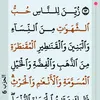 زُيِّنَ لِلنَّاسِ حُبُّ
الشَّهَوَاتِ مِنَ النِّسَاءِ
وَالْبَنِينَ وَالْقَنَاطِيرِ الْمُقَنطَرَةِ
مِنَ الذَّهَبِ وَالْفِضَّةِ وَالْخَيْلِ
الْمُسَوَّمَةِ وَالْأَنْعَامِ وَالْحَرْثِ